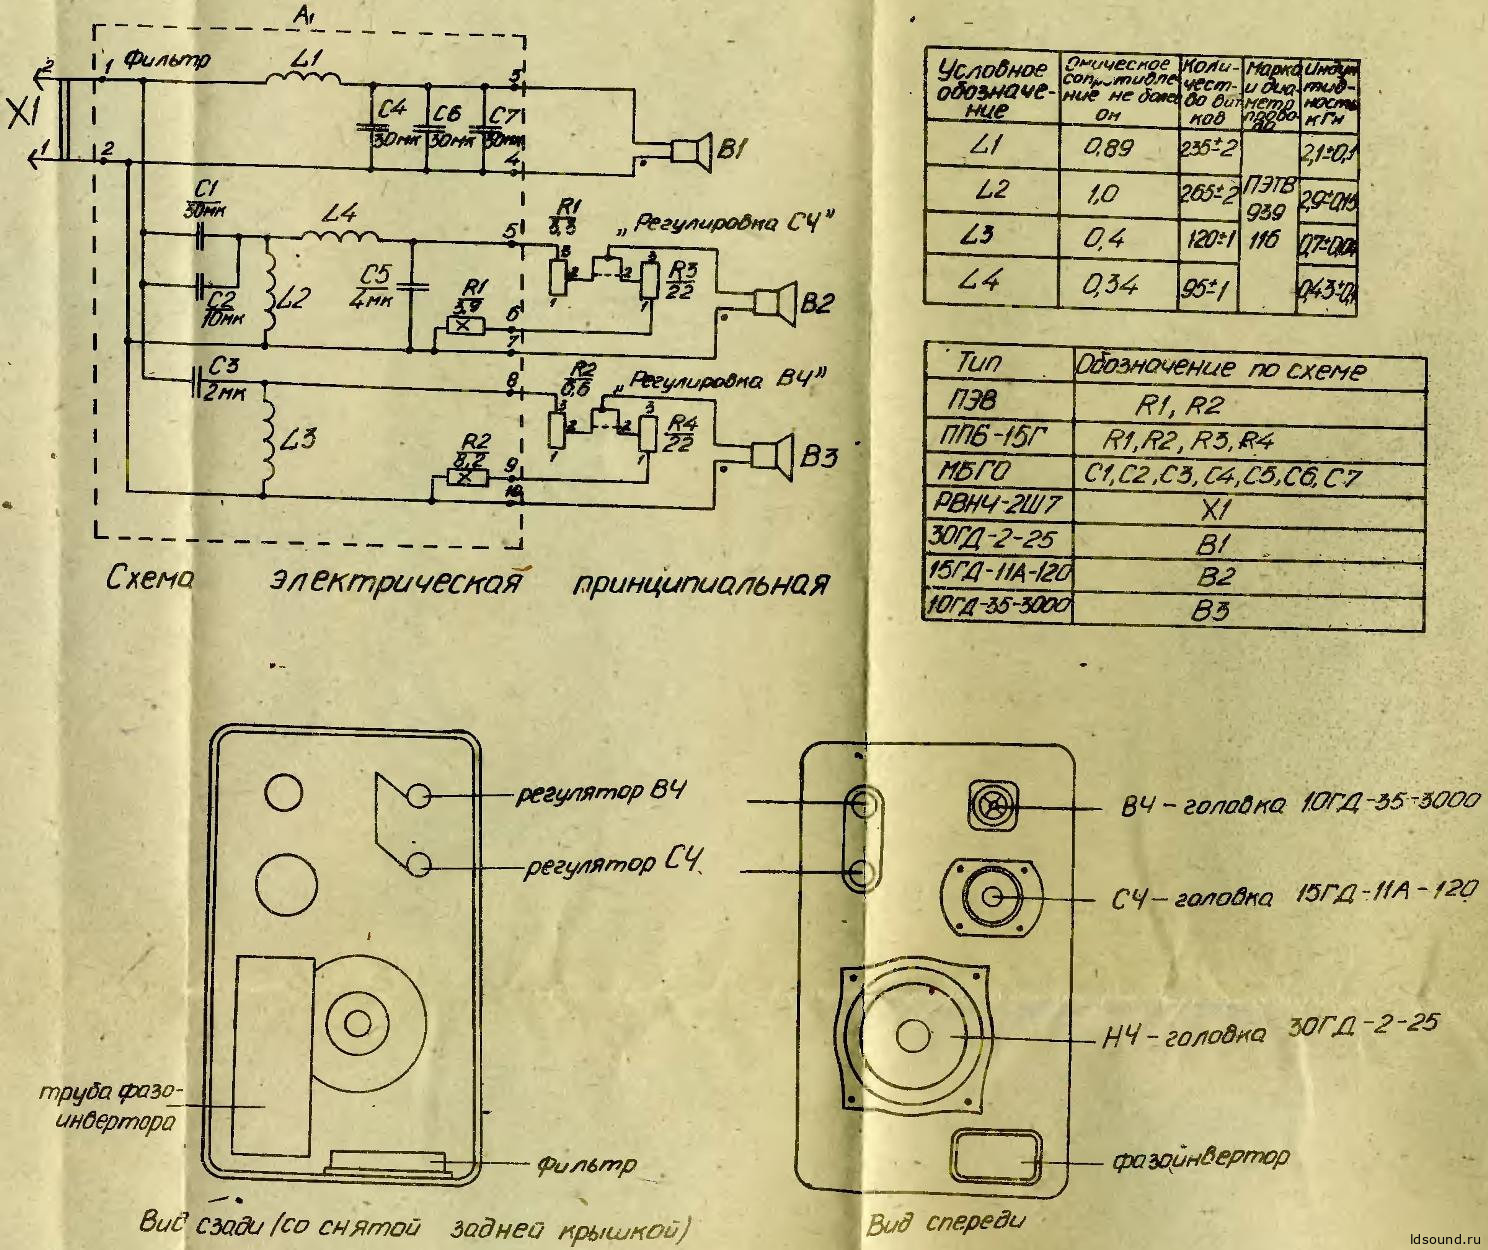 А1
Фильтр
L1
2
1
3
X1
C4
30мк
C6
30мк
C7
30мк
В1
1
2
4
C1
30мк
L4
5
R1
3,3
„Регулировка СЧ"
3
2
1
2
3
1
R3
22
C2
10мк
L2
C5
4мк
R1
3,9
6
7
В2
C3
2мк
8
R2
6,6
„Регулировка ВЧ"
3
2
1
2
3
1
R4
22
L3
R2
8,2
9
10
В3
Схема электрическая принципиальная
Условное обозначе-ние
Омическое сопротивле-ние не более ом
Коли-чест-во вит ков
Марка и диа-метр прово-
Индук тив-ность мГн
L1 0,89 235±2 2,1±0,1
L2 1,0 265±2 ПЭТВ 2,9±0,15
L3 0,4 120±1 939 116
L4 0,34 95±1
Тип Обозначение по схеме
ПЭВ R1, R2
ППБ-15Г R1,R2, R3, R4
МБГО C1,C2,C3,C4,C5,C6,C7
РВНЧ-2Ш7 X1
30ГД-2-25 В1
15ГД-11А-120 В2
10ГД-35-3000 В3
регулятор ВЧ
регулятор СЧ
труба фазо-
инвертора
фильтр
Вид сзади (со снятой задней крышкой)
ВЧ - головка 10ГД-35-3000
СЧ - головка 15ГД-11А-120
НЧ - головка 30ГД-2-25
фазоинвертор
Вид спереди
ldsound.ru